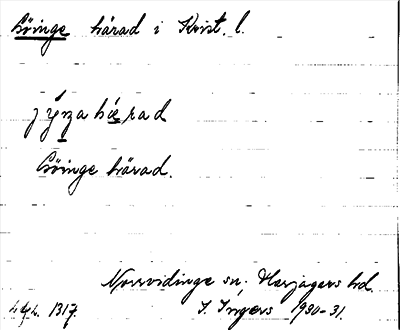 Göinge härad i Krist. l.
Göinge härad.
Norrvidinge sn, Harjagers hd.
1317. I. Ingers 1930-31.